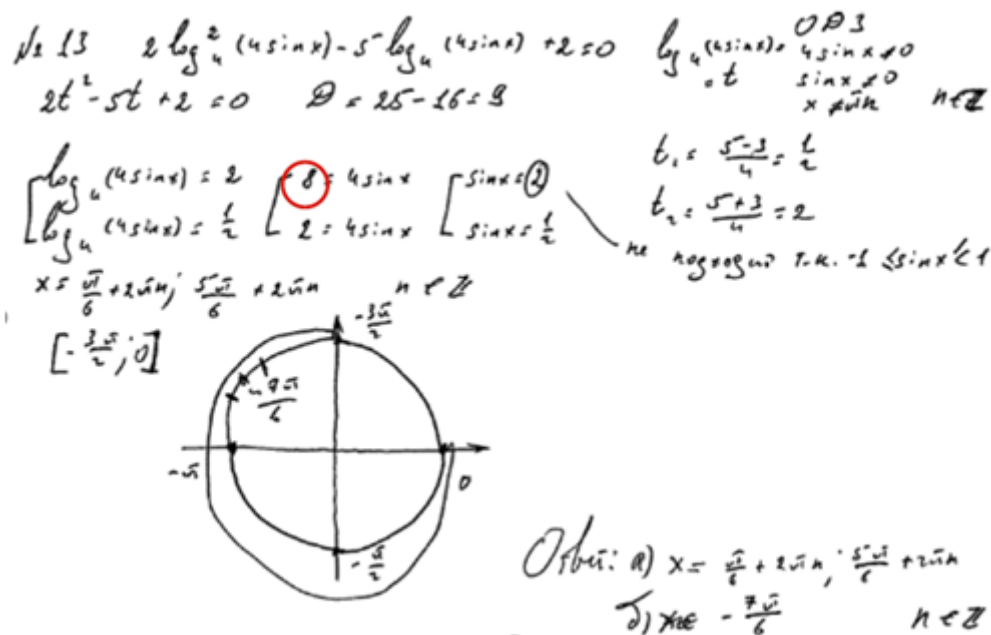 № 13   2 log₄² (4sinx) - 5 log₄ (4sinx) + 2 = 0   log₄ (4sinx) = t   ОДЗ
4sinx ≠ 0
sinx ≠ 0
x ≠ πn   n ∈ Z
2t² - 5t + 2 = 0   D = 25 - 16 = 9
t₁ = (5-3)/4 = 1/2
t₂ = (5+3)/4 = 2
[ log₄ (4sinx) = 2   [ 8 = 4sinx   [ sinx = 2
log₄ (4sinx) = 1/2   2 = 4sinx   sinx = 1/2
не подходит т.к. -1 ≤ sinx ≤ 1
x = π/6 + 2πn; 5π/6 + 2πn   n ∈ Z
[-3π/2; 0]
-3π/2
-7π/6
-π   0
-π/2
Ответ: а) x = π/6 + 2πn; 5π/6 + 2πn
б) -7π/6   n ∈ Z